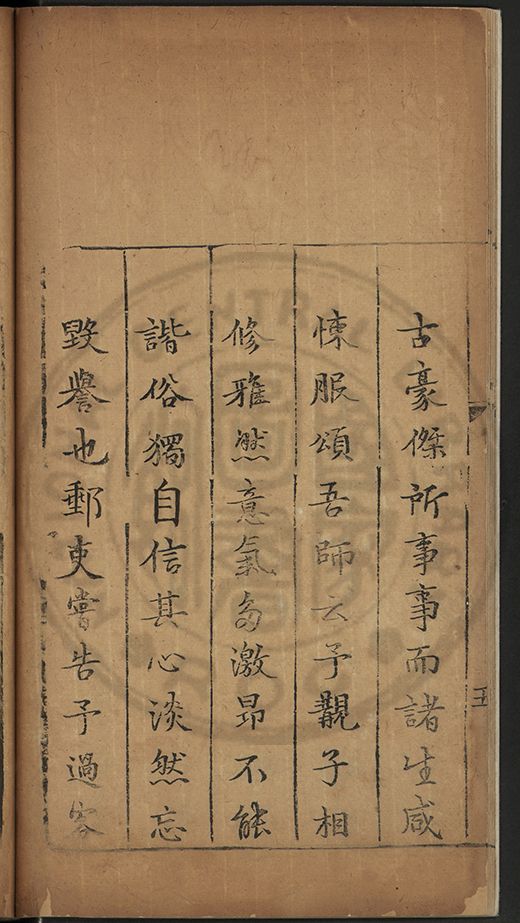 古豪傑所事事而諸生咸
悚服頌吾師云予觀子相
修雅然意氣多激昂不能
諧俗獨自信其心淡然忘
毀譽也郵吏嘗告予過客
五